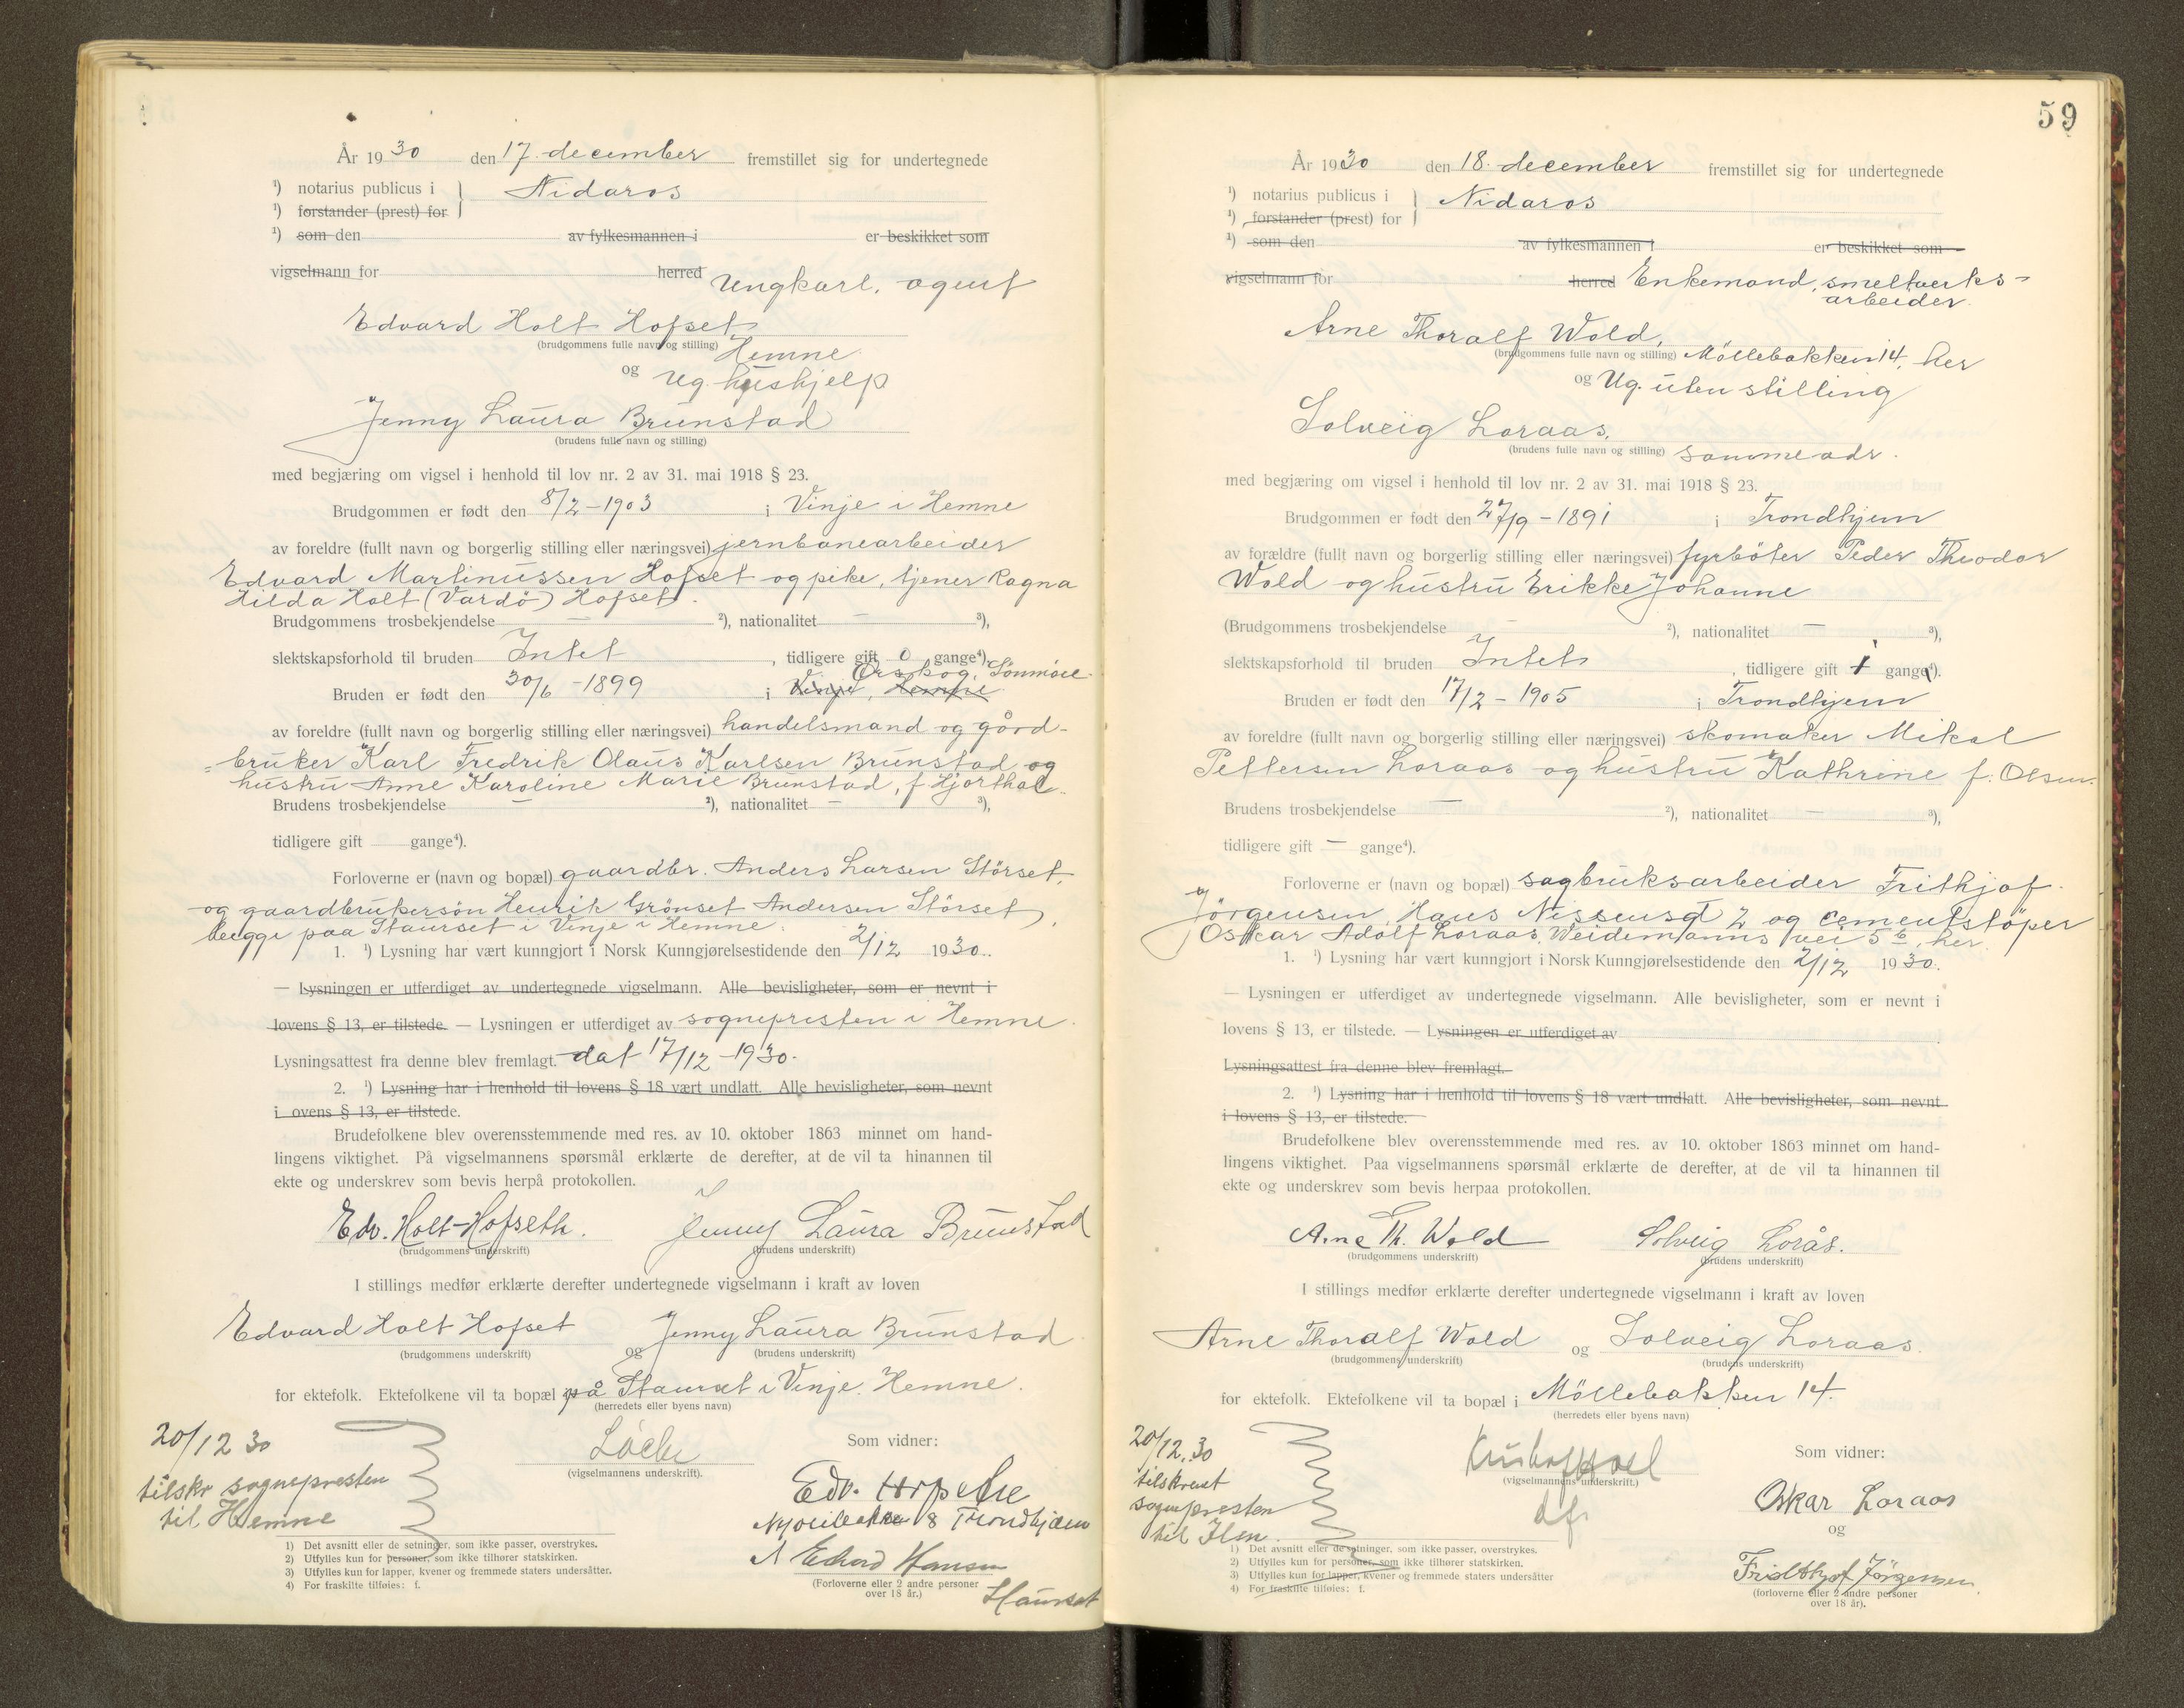 År 1930 den 17. december fremstillet sig for undertegnede
¹) notarius publicus i } Nidaros
¹) forstander (prest) for
¹) som den av fylkesmannen i er beskikket som
vigselmann for herred Ungkarl, agent
Edvard Holt Hofset,
(brudgommens fulle navn og stilling) Hemne
og ug. hushjelp
Jenny Laura Brunstad
(brudens fulle navn og stilling)
med begjæring om vigsel i henhold til lov nr. 2 av 31. mai 1918 § 23.
Brudgommen er født den 8/2-1903 i Vinje i Hemne
av foreldre (fullt navn og borgerlig stilling eller næringsvei) jernbanearbeider
Edvard Martinussen Hofset og pike, tjener Ragna
Hilda Holt (Vardö) Hofset.
Brudgommens trosbekjendelse — ²), nationalitet — ³),
slektskapsforhold til bruden Intet , tidligere gift 0 gange⁴).
Ørskog, Sönmöre
Bruden er født den 30/6-1899 i Vinje, Hemne
av foreldre (fullt navn og borgerlig stilling eller næringsvei) handelsmand og gård-
bruker Karl Fredrik Olaus Karlsen Brunstad og
hustru Anne Karoline Marie Brunstad, f. Hjorthol.
Brudens trosbekjendelse — ²), nationalitet — ³),
tidligere gift gange⁴).
Forloverne er (navn og bopæl) gaardbr. Anders Larsen Störset,
og gaardbrukersön Henrik Grönset Andersen Störset,
begge paa Staurset i Vinje i Hemne.
1. ¹) Lysning har vært kunngjort i Norsk Kunngjørelsestidende den 2/12 1930.
— Lysningen er utferdiget av undertegnede vigselmann. Alle bevisligheter, som er nevnt i
lovens § 13, er tilstede. — Lysningen er utferdiget av sognepresten i Hemne.
Lysningsattest fra denne blev fremlagt. dat 17/12-1930.
2. ¹) Lysning har i henhold til lovens § 18 vært undlatt. Alle bevisligheter, som nevnt
i ovens § 13, er tilstede.
Brudefolkene blev overensstemmende med res. av 10. oktober 1863 minnet om hand-
lingens viktighet. På vigselmannens spørsmål erklærte de derefter, at de vil ta hinannen til
ekte og underskrev som bevis herpå protokollen.
Edv. Holt-Hofseth. Jenny Laura Brunstad
(brudgommens underskrift) (brudens underskrift)
I stillings medfør erklærte derefter undertegnede vigselmann i kraft av loven
Edvard Holt Hofset og Jenny Laura Brunstad
(brudgommens underskrift) (brudens underskrift)
for ektefolk. Ektefolkene vil ta bopæl på Staurset i Vinje. Hemne.
(herredets eller byens navn)
20/12 30
tilskr sognepresten
til Hemne
(vigselmannens underskrift).
Som vidner:
Edv.
8 Trondhjem
Hansen
(Forloverne eller 2 andre personer
over 18 år.) Staurset
1) Det avsnitt eller de setninger, som ikke passer, overstrykes.
2) Utfylles kun for personer, som ikke tilhører statskirken.
3) Utfylles kun for lapper, kvener og fremmede staters undersåtter.
4) For fraskilte tilføies: f.
59
År 1930 den 18. december fremstillet sig for undertegnede
¹) notarius publicus i } Nidaros
¹) forstander (prest) for
¹) som den av fylkesmannen i er beskikket som
vigselmann for herred Enkemand, smeltverks-
arbeider.
Arne Thoralf Wold,
(brudgommens fulle navn og stilling) Möllebakken 14, her
og Ug. uten stilling
Solveig Loraas,
(brudens fulle navn og stilling) samme adr.
med begjæring om vigsel i henhold til lov nr. 2 av 31. mai 1918 § 23.
Brudgommen er født den 27/9-1891 i Trondhjem
av forældre (fullt navn og borgerlig stilling eller næringsvei) fyrböter Peder Theodor
Wold og hustru Erikke Johanne
(Brudgommens trosbekjendelse — ²), nationalitet — ³),
slektskapsforhold til bruden Intet , tidligere gift 1 gange⁴).
Bruden er født den 17/2-1905 i Trondhjem
av foreldre (fullt navn og borgerlig stilling eller næringsvei) skomaker Mikal
Pettersen Loraas og hustru Kathrine f. Olsen.
Brudens trosbekjendelse — ²), nationalitet — ³),
tidligere gift — gange⁴).
Forloverne er (navn og bopæl) sagbruksarbeider Frithjof
Jörgensen, Hans Nissensgt 2 og cementstöper
Oskar Adolf Loraas, Weidemanns vei 5 b, her.
1. ¹) Lysning har vært kunngjort i Norsk Kunngjørelsestidende den 2/12 1930.
— Lysningen er utferdiget av undertegnede vigselmann. Alle bevisligheter, som er nevnt i
lovens § 13, er tilstede. — Lysningen er utferdiget av
Lysningsattest fra denne blev fremlagt.
2. ¹) Lysning har i henhold til lovens § 18 vært undlatt. Alle bevisligheter, som nevnt
i lovens § 13, er tilstede.
Brudefolkene blev overensstemmende med res. av 10. oktober 1863 minnet om hand-
lingens viktighet. Paa vigselmannens spørsmål erklærte de derefter, at de vil ta hinannen til
ekte og underskrev som bevis herpaa protokollen.
Arne Th. Wold Solveig Lorås.
(brudgommens underskrift) (brudens underskrift)
I stillings medfør erklærte derefter undertegnede vigselmann i kraft av loven
Arne Thoralf Wold og Solveig Loraas.
(brudgommens underskrift) (brudens underskrift)
for ektefolk. Ektefolkene vil ta bopæl i Möllebakken 14.
(herredets eller byens navn)
20/12.30
tilskrevet
sognepresten
til Ilen.
(vigselmannens underskrift.)
Som vidner:
Oskar Loraas
og
Fridthjof Jörgensen
(forloverne eller 2 andre personer
over 18 år).
1) Det avsnitt eller de setninger, som ikke passer, overstrykes.
2) Utfylles kun for personer, som ikke tilhører statskirken.
3) Utfylles kun for lapper, kvener og fremmede staters undersåtter
4) For fraskilte tilføies: f.